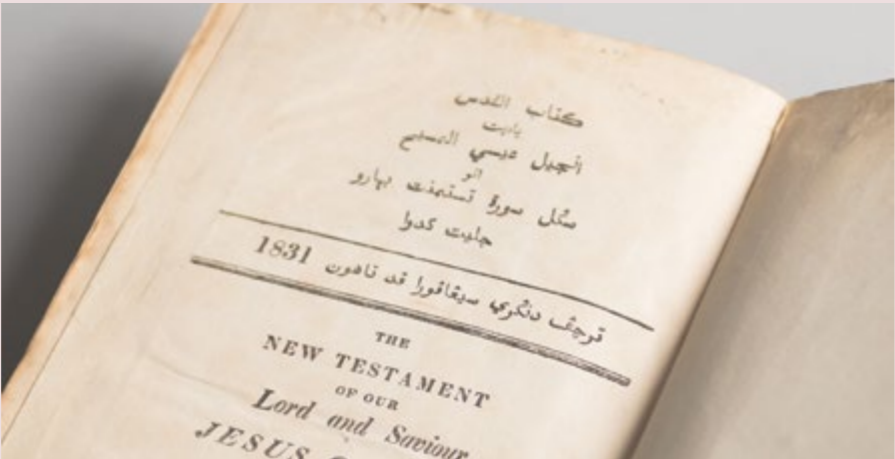 كتاب القدس
يايت
انجيل عيسي المسيح
اتو
سڬل سورة تستمنت بهارو
جليت كدوا
ترچڤ دنڬري سيڠاڤورا قد تاهون 1831
THE
NEW TESTAMENT
OF OUR
Lord and Saviour
JESUS